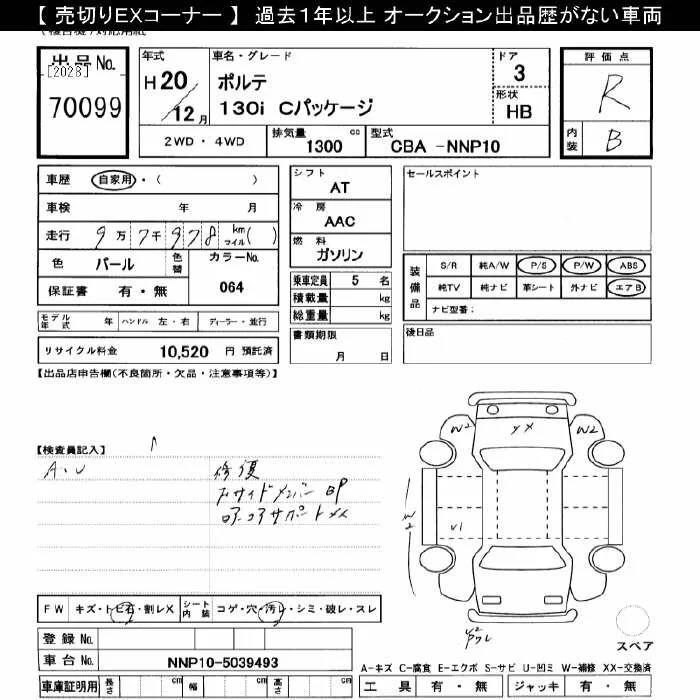 【 売切りEXコーナー 】 過去１年以上 オークション出品歴がない車両
出品No.
[2028]
70099
年式
H20
12月
車名・グレード
ポルテ
130i Cパッケージ
ドア
3
形状
HB
評価点
R
内装
B
2WD ・ 4WD
排気量
1300 cc
型式
CBA -NNP10
車歴 自家用・( )
車検 年 月
走行 9万7千978 km マイル( )
色 パール 色替
カラーNo.
064
保証書 有・無
モデル年式 年 ハンドル 左・右 ディーラー・並行
リサイクル料金 10,520 円 預託済
シフト
AT
冷房
AAC
燃料
ガソリン
乗車定員 5 名
積載量 kg
総重量 kg
書類期限
月 日
セールスポイント
装備品
S/R 純A/W P/S P/W ABS
純TV 純ナビ 革シート 外ナビ エアB
ナビ型番:
後日品
【出品店申告欄(不良箇所・欠品・注意事項等)】
【検査員記入】
A・U
修復
サイドメンバー BP
コアサポートXX
YX
W2
W2
W2
U1
FW キズ・トビ石・割レX
シート内装 コゲ・穴・汚レ・シミ・破レ・スレ
登録 No.
車台 No. NNP10-5039493
車庫証明用 長さ cm 幅 cm 高さ cm
スペア
A-キズ C-腐食 E-エクボ S-サビ U-凹ミ W-補修 XX-交換済
工具 有・無 ジャッキ 有・無